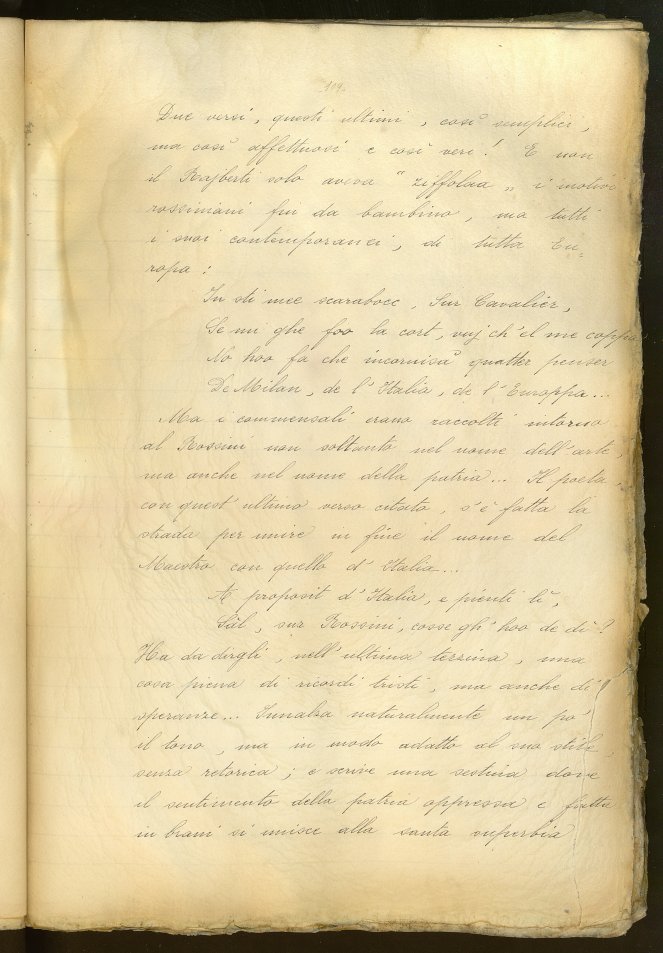 109.
Due versi, questi ultimi, così semplici,
ma così affettuosi e così veri! E non
il Rajberti solo aveva "ziffolaa" i motivi
rossiniani fin da bambino, ma tutti
i suoi contemporanei, di tutta Eu=
ropa:
In sti mee scarabocc, Sur Cavalier,
Se mi ghe foo la cort, vuj ch'el me coppa
No hoo fa che incornisà quatter penser
De Milan, de l'Italia, de l'Europpa...
Ma i commensali erano raccolti intorno
al Rossini non soltanto nel nome dell'arte,
ma anche nel nome della patria... Il poeta,
con quest'ultimo verso citato, s'è fatta la
strada per unire in fine il nome del
Maestro con quello d'Italia...
A proposit d'Italia, e pienti lì,
Sal, sur Rossini, cosse gh'hoo de dì?
Ha da dirgli, nell'ultima terzina, una
cosa piena di ricordi tristi, ma anche di
speranze... Innalza naturalmente un po'
il tono, ma in modo adatto al suo stile
senza retorica; e scrive una sestina dove
il sentimento della patria oppressa e fatta
in brani si unisce alla santa superbia